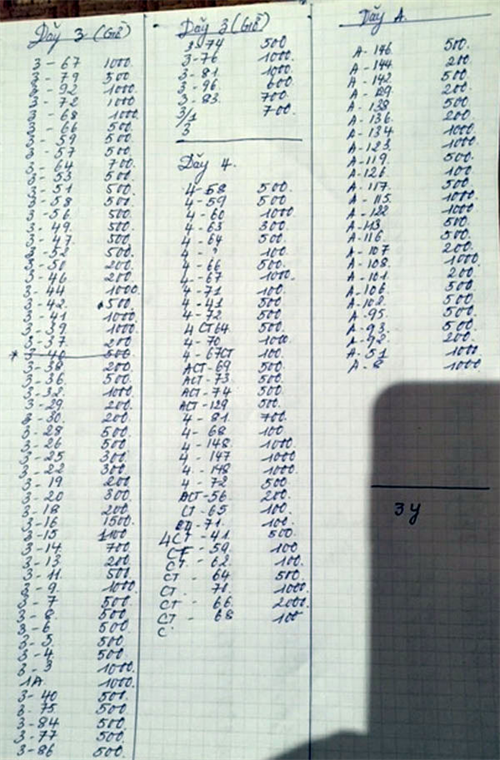 Dãy 3 (Giữ)
3 - 67 1000.
3 - 79 500
3 - 92 1000
3 - 72 1000
3 - 68 1000
3 - 66 500.
3 - 59 500
3 - 57 500.
3 - 64 700
3 - 53 500.
3 - 51 500.
3 - 58 500
3 - 56 500.
3 - 49 500.
3 - 47 300
3 - 52 500.
3 - 50 200
3 - 46 200
3 - 44 1000
3 - 42 500
3 - 41 1000
3 - 39 1000
3 - 37 200
3 - 40 500
3 - 38 200
3 - 36 500.
3 - 32 1000
3 - 29 200
3 - 30 200
3 - 28 500
3 - 26 500
3 - 25 300
3 - 22 300
3 - 19 200
3 - 20 300
3 - 18 200
3 - 16 1500
3 - 15
3 - 14 700
3 - 13 200
3 - 11 500
3 - 9 1000
3 - 7 500
3 - 8 500
3 - 6 500
3 - 5 500
3 - 4 500
3 - 3 1000
1A 1000
3 - 40 500
3 - 75 500
3 - 84 500
3 - 77 500
3 - 86 500
Dãy 3 (Giữ)
3 - 74 500
3 - 76 1000
3 - 81 1000
3 - 96 600
3 - 83 700
3/1 700.
3
Dãy 4.
4 - 58 500.
4 - 59 500.
4 - 60 1000
4 - 63 300
4 - 64 500.
4 - ? 100
4 - 66 500.
4 - 67 1000
4 - 71 100
4 - 41 500
4 - 72 500.
4 CT64 500.
4 - 70 1000
4 - 67CT 100.
ACT - 69 500.
ACT - 73 500.
ACT - 74 500
ACT - 129 500.
4 - 81 700.
4 - 68 100
4 - 148 1000
4 - 147 1000
4 - 148 1000
4 - 72 500
ACT - 56 200.
CT - 65 100
71 100.
4CT - 41 500
CT - 59 100
CT - 62 100.
CT - 64 500
CT - 70 1000
CT - 66 2000
CT - 68 100
C
Dãy A.
A - 146 500.
A - 144 200
A - 142 500
A - 129 200.
A - 138 500
A - 136 200
A - 134 1000
A - 123 1000
A - 119 500
A - 126 100
A - 117 500
A - 115 1000
A - 122 1000
A - 113 500
A - 116 500
A - 107 200
A - 108 1000
A - 101 200
A - 106 500
A - 102 500
A - 95 500.
A - 93 500
A - 92 200
A - 51 1000
A - 8 1000
3 y